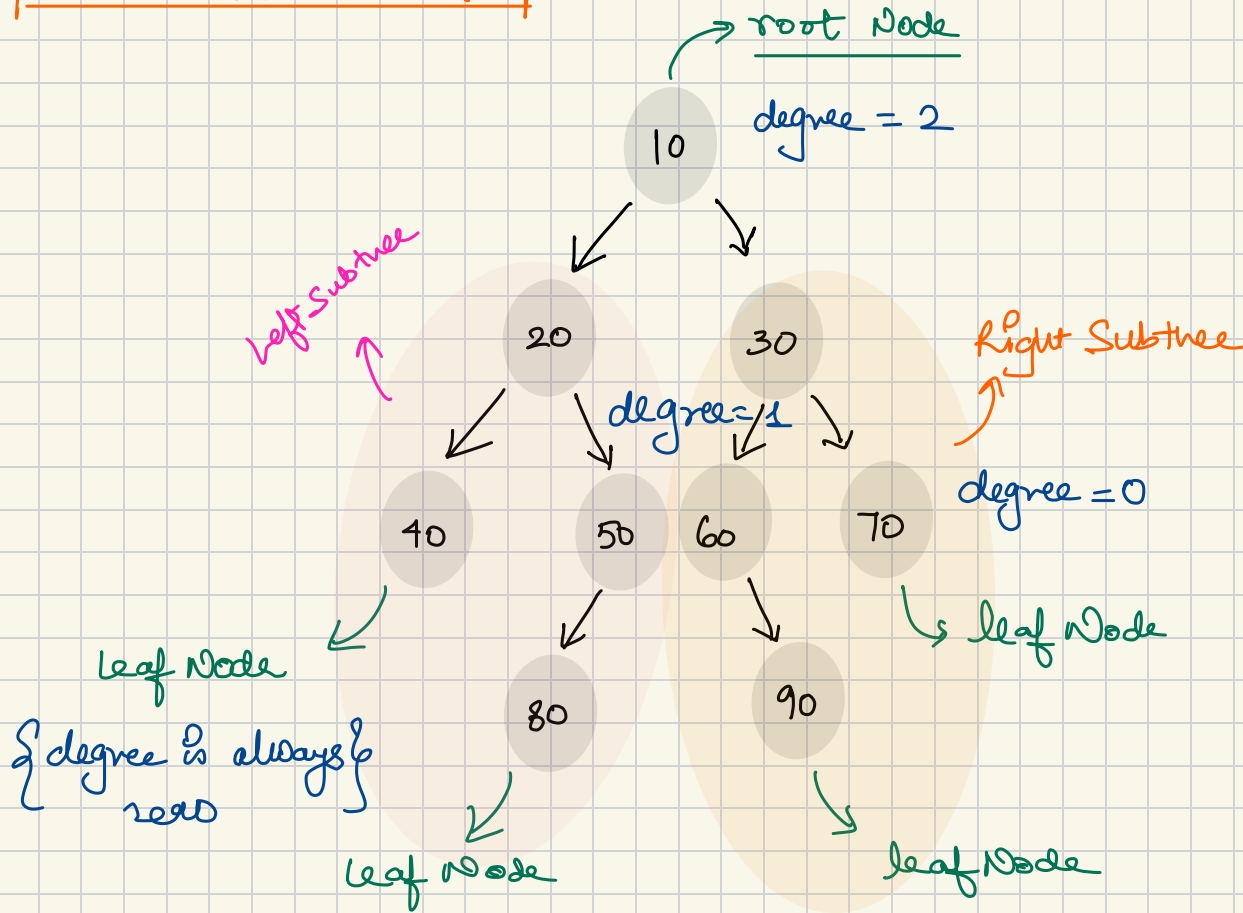 root Node
degree = 2
10
Left Subtree
20
30
Right Subtree
degree=1
degree = 0
40
50
60
70
leaf Node
leaf Node
80
90
{degree is always}
zero
leaf Node
leaf Node